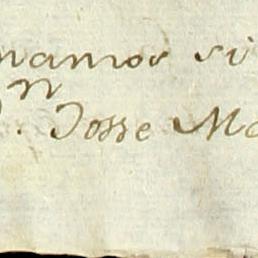 namos si
n
. Josse Ma